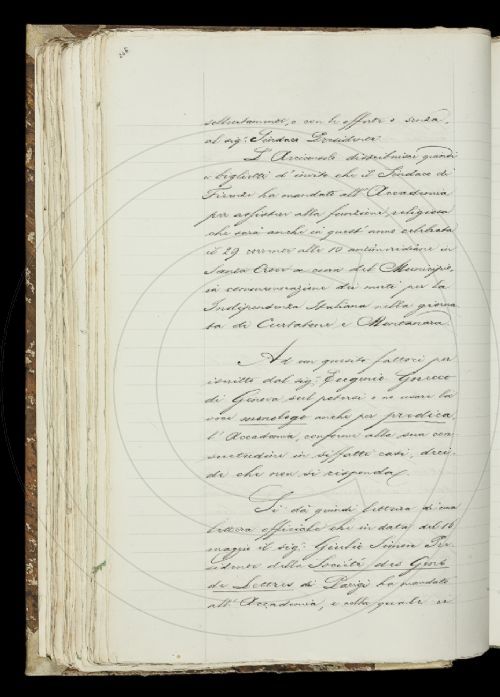 sollecitamente, e con le offerte o senza,
al sig. Sindaco Presidente.
L'Arciconsolo distribuisce quindi
i biglietti d'invito che il Sindaco di
Firenze ha mandato all'Accademia
per assistere alla funzione religiosa
che sarà anche in quest'anno celebrata
il 29 corrente alle 10 antimeridiane in
Santa Croce a cura del Municipio,
in commemorazione dei morti per la
Indipendenza Italiana nella giorna
ta di Curtatone e Montanara.
Ad un quesito fattoci per
iscritto dal sig. Eugenio
di Genova sul potersi o no usare la
voce monologo anche per predica
l'Accademia, conforme alla sua con
suetudine in siffatti casi, deci
de che non si risponda.
Si dà quindi lettura di una
lettera officiale che in data del 16
maggio il sig. Giulio Simon Pre
sidente della Société des Gens
de Lettres di Parigi ha mandato
all'Accademia, e colla quale si